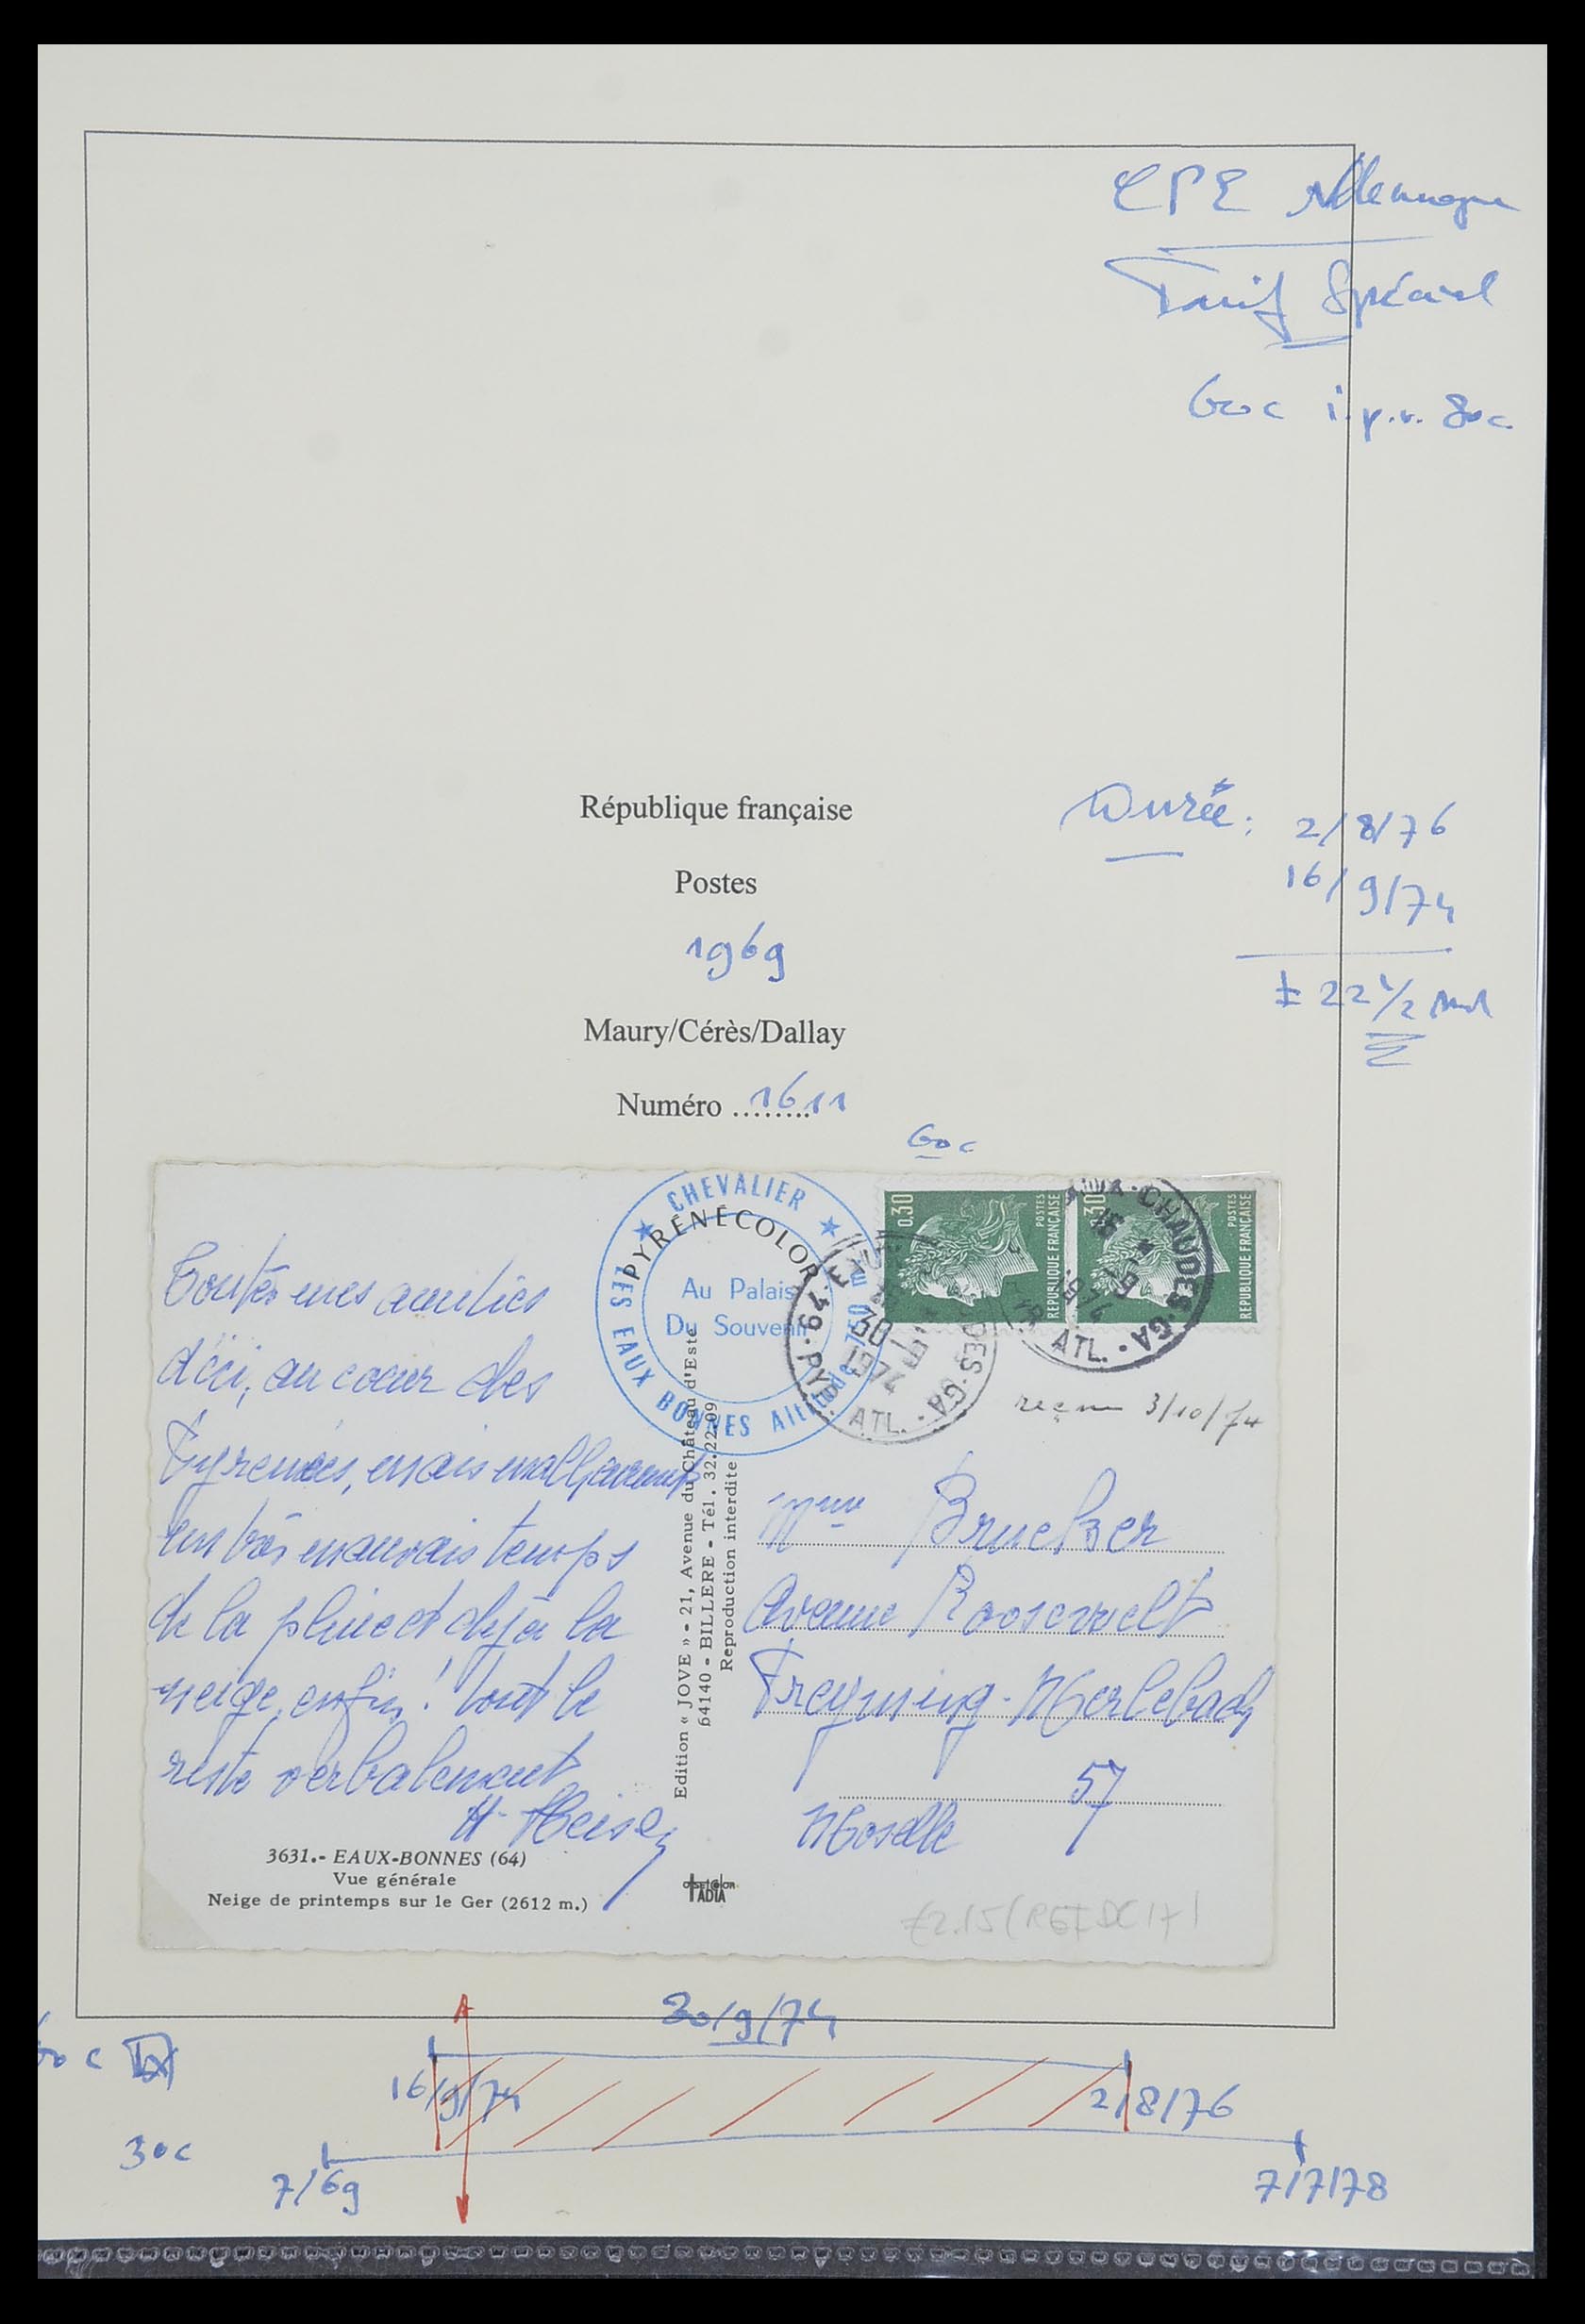 CPE Allemagne
Tarif Spécial
60c i.p.v. 80c.
République française
Postes
1969
Maury/Cérès/Dallay
Numéro ........1611
Durée: 2/8/76
16/9/74
± 22 1/2
60c
CHEVALIER
LES EAUX BONNES Altitude 750 m
Au Palais
Du Souvenir
PYRÉNÉCOLOR
0,30 POSTES
REPUBLIQUE FRANÇAISE
0,30 POSTES
REPUBLIQUE FRANÇAISE
EAUX-CHAUDES-GA
64 - PYR. ATL.
reçu 3/10/74
Toutes mes amitiés
d'ici, au coeur des
Pyrenées, mais malheureus
un très mauvais temps
de la pluie et déjà la
neige, enfin! tout le
reste verbalement
Mme Bruecker
Avenue Roosevelt
Freyming-Merlebach
57
Moselle
Edition « JOVE » - 21, Avenue du Château d'Este
64140 - BILLERE - Tél. 32.22.09
Reproduction interdite
3631.- EAUX-BONNES (64)
Vue générale
Neige de printemps sur le Ger (2612 m.)
£2.15
30/9/74
60 c
16/9/74
2/8/76
30c
7/69
7/7/78